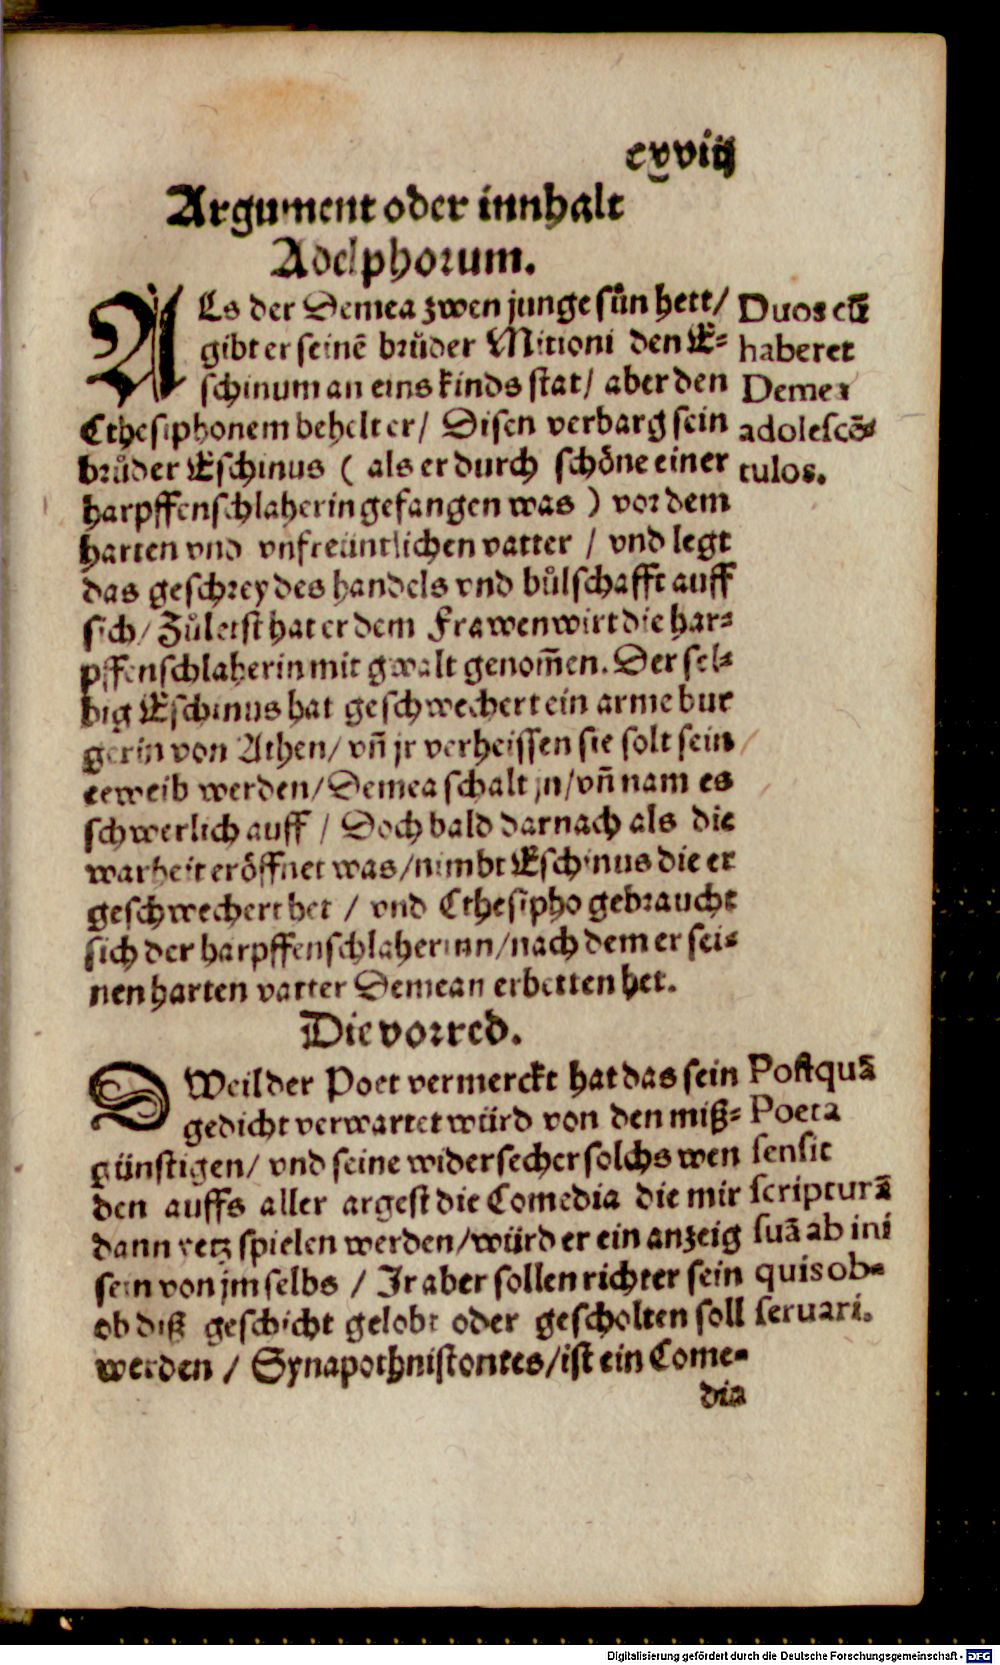 cxviij
Argument oder innhalt
Adelphorum.
ALs der Demea zwen junge sün hett/
gibt er seinē brůder Mitioni den E⸗
schinum an eins kinds stat/ aber den
Cthesiphonem behelt er/ Disen verbarg sein
brůder Eschinus ( als er durch schöne einer
harpffenschlaherin gefangen was ) vor dem
harten vnd vnfreüntlichen vatter / vnd legt
das geschrey des handels vnd bůlschafft auff
sich/ Zůletst hat er dem Frawenwirt die har⸗
pffenschlaherin mit gwalt genom̃en. Der sel⸗
big Eschinus hat geschwechert ein arme bur
gerin von Athen/ vñ jr verheissen sie solt sein
eeweib werden/ Demea schalt jn/ vñ nam es
schwerlich auff / Doch bald darnach als die
warheit eröffnet was/ nimbt Eschinus die er
geschwechert het / vnd Cthesipho gebraucht
sich der harpffenschlaherinn/ nach dem er sei⸗
nen harten vatter Demean erbetten het.
Duos cū
haberet
Demea
adolescē⸗
tulos.
Die vorred.
SWeil der Poet vermerckt hat das sein
gedicht verwartet würd von den miß⸗
günstigen/ vnd seine widersecher solchs wen
den auffs aller argest die Comedia die mir
dann yetz spielen werden/ würd er ein anzeig
sein von jm selbs / Jr aber sollen richter sein
ob diß geschicht gelobt oder gescholten soll
werden / Synapothnistontes/ ist ein Come⸗
dia
Postquā
Poeta
sensit
scripturā
suā ab ini
quis ob⸗
seruari.
Digitalisierung gefördert durch die Deutsche Forschungsgemeinschaft - DFG